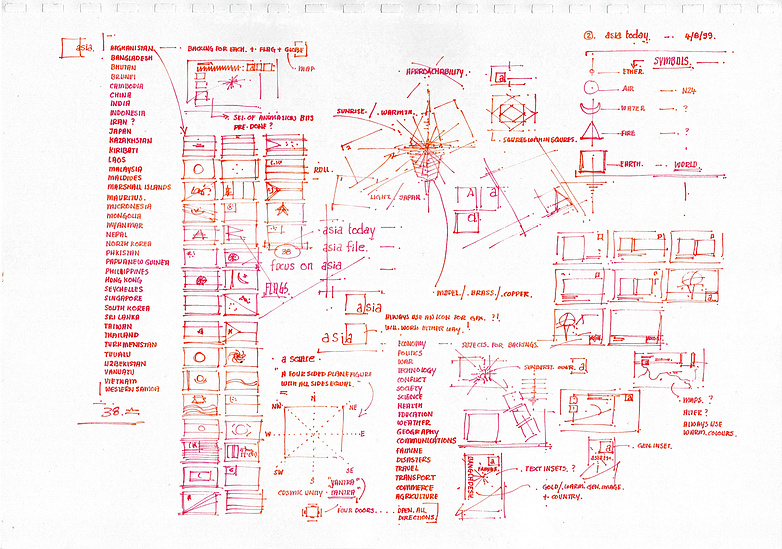 asia.
AFGHANISTAN
BANGLADESH
BHUTAN
BRUNEI
CAMBODIA
CHINA
INDIA
INDONESIA
IRAN ?
JAPAN
KAZAKHSTAN
KIRIBATI
LAOS
MALAYSIA
MALDIVES
MARSHALL ISLANDS
MAURITIUS.
MICRONESIA
MONGOLIA
MYANMAR
NEPAL
NORTH KOREA
PAKISTAN
PAPUA NEW GUINEA
PHILIPPINES
HONG KONG
SEYCHELLES
SINGAPORE
SOUTH KOREA
SRI LANKA
TAIWAN
THAILAND
TURKMENISTAN
TUVALU
UZBEKISTAN
VANUATU
VIETNAM
WESTERN SAMOA
38.
BACKING FOR EACH. + FLAG + GLOBE
MAP
SET OF ANIMATION BUS
PRE-DONE ?
ROLL.
38
FLAGS.
asia today
asia file.
focus on asia
asia
asia
ALWAYS USE AN ICON FOR GFX. ?!
WILL WORK EITHER WAY !
a square.
A FOUR SIDED PLANE FIGURE
WITH ALL SIDES EQUAL.
N
NW
NE
W
E
SW
SE
S
COSMIC UNITY.
"YANTRA"
TANTRA
FOUR DOORS.... OPEN. ALL
DIRECTIONS.
APPROACHABILITY.
SUNRISE. / WARMTH.
LIGHT. JAPAN.
MODEL /. BRASS /. COPPER.
a
SQUARES WITHIN SQUARES.
A a
a
ECONOMY
SUBJECTS. FOR BACKINGS.
POLITICS
WAR
TECHNOLOGY
CONFLICT
SOCIETY
SCIENCE
HEALTH
EDUCATION
WEATHER
GEOGRAPHY
COMMUNICATIONS
FAMINE
DISASTERS
TRAVEL
TRANSPORT
COMMERCE
AGRICULTURE
SUNBURST. OVER. a
BANGLADESH
TEXT INSETS. ?
GOLD/WARM. GEN. IMAGE.
+ COUNTRY.
GEN. INSET.
MAPS. ?
ALTER ?
ALWAYS USE
WARM. COLOURS.
2. asia today. — 4/8/99.
SYMBOLS.
ETHER.
AIR
N24
WATER
?
FIRE
?
EARTH.
WORLD